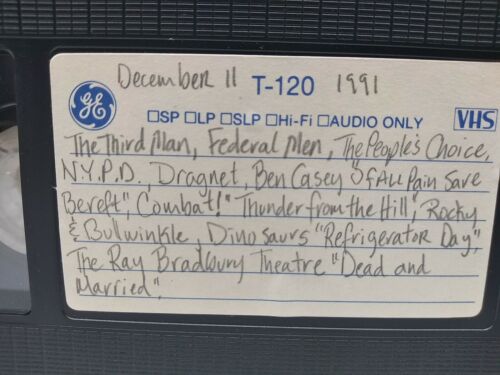 December 11 T-120 1991
GE □SP □LP □SLP □Hi-Fi □AUDIO ONLY VHS
The Third Man, Federal Men, The People's Choice,
N.Y.P.D., Dragnet, Ben Casey "Of All Pain Save
Bereft", Combat! "Thunder from the Hill", Rocky
& Bullwinkle, Dinosaurs "Refrigerator Day",
The Ray Bradbury Theatre "Dead and
Married".